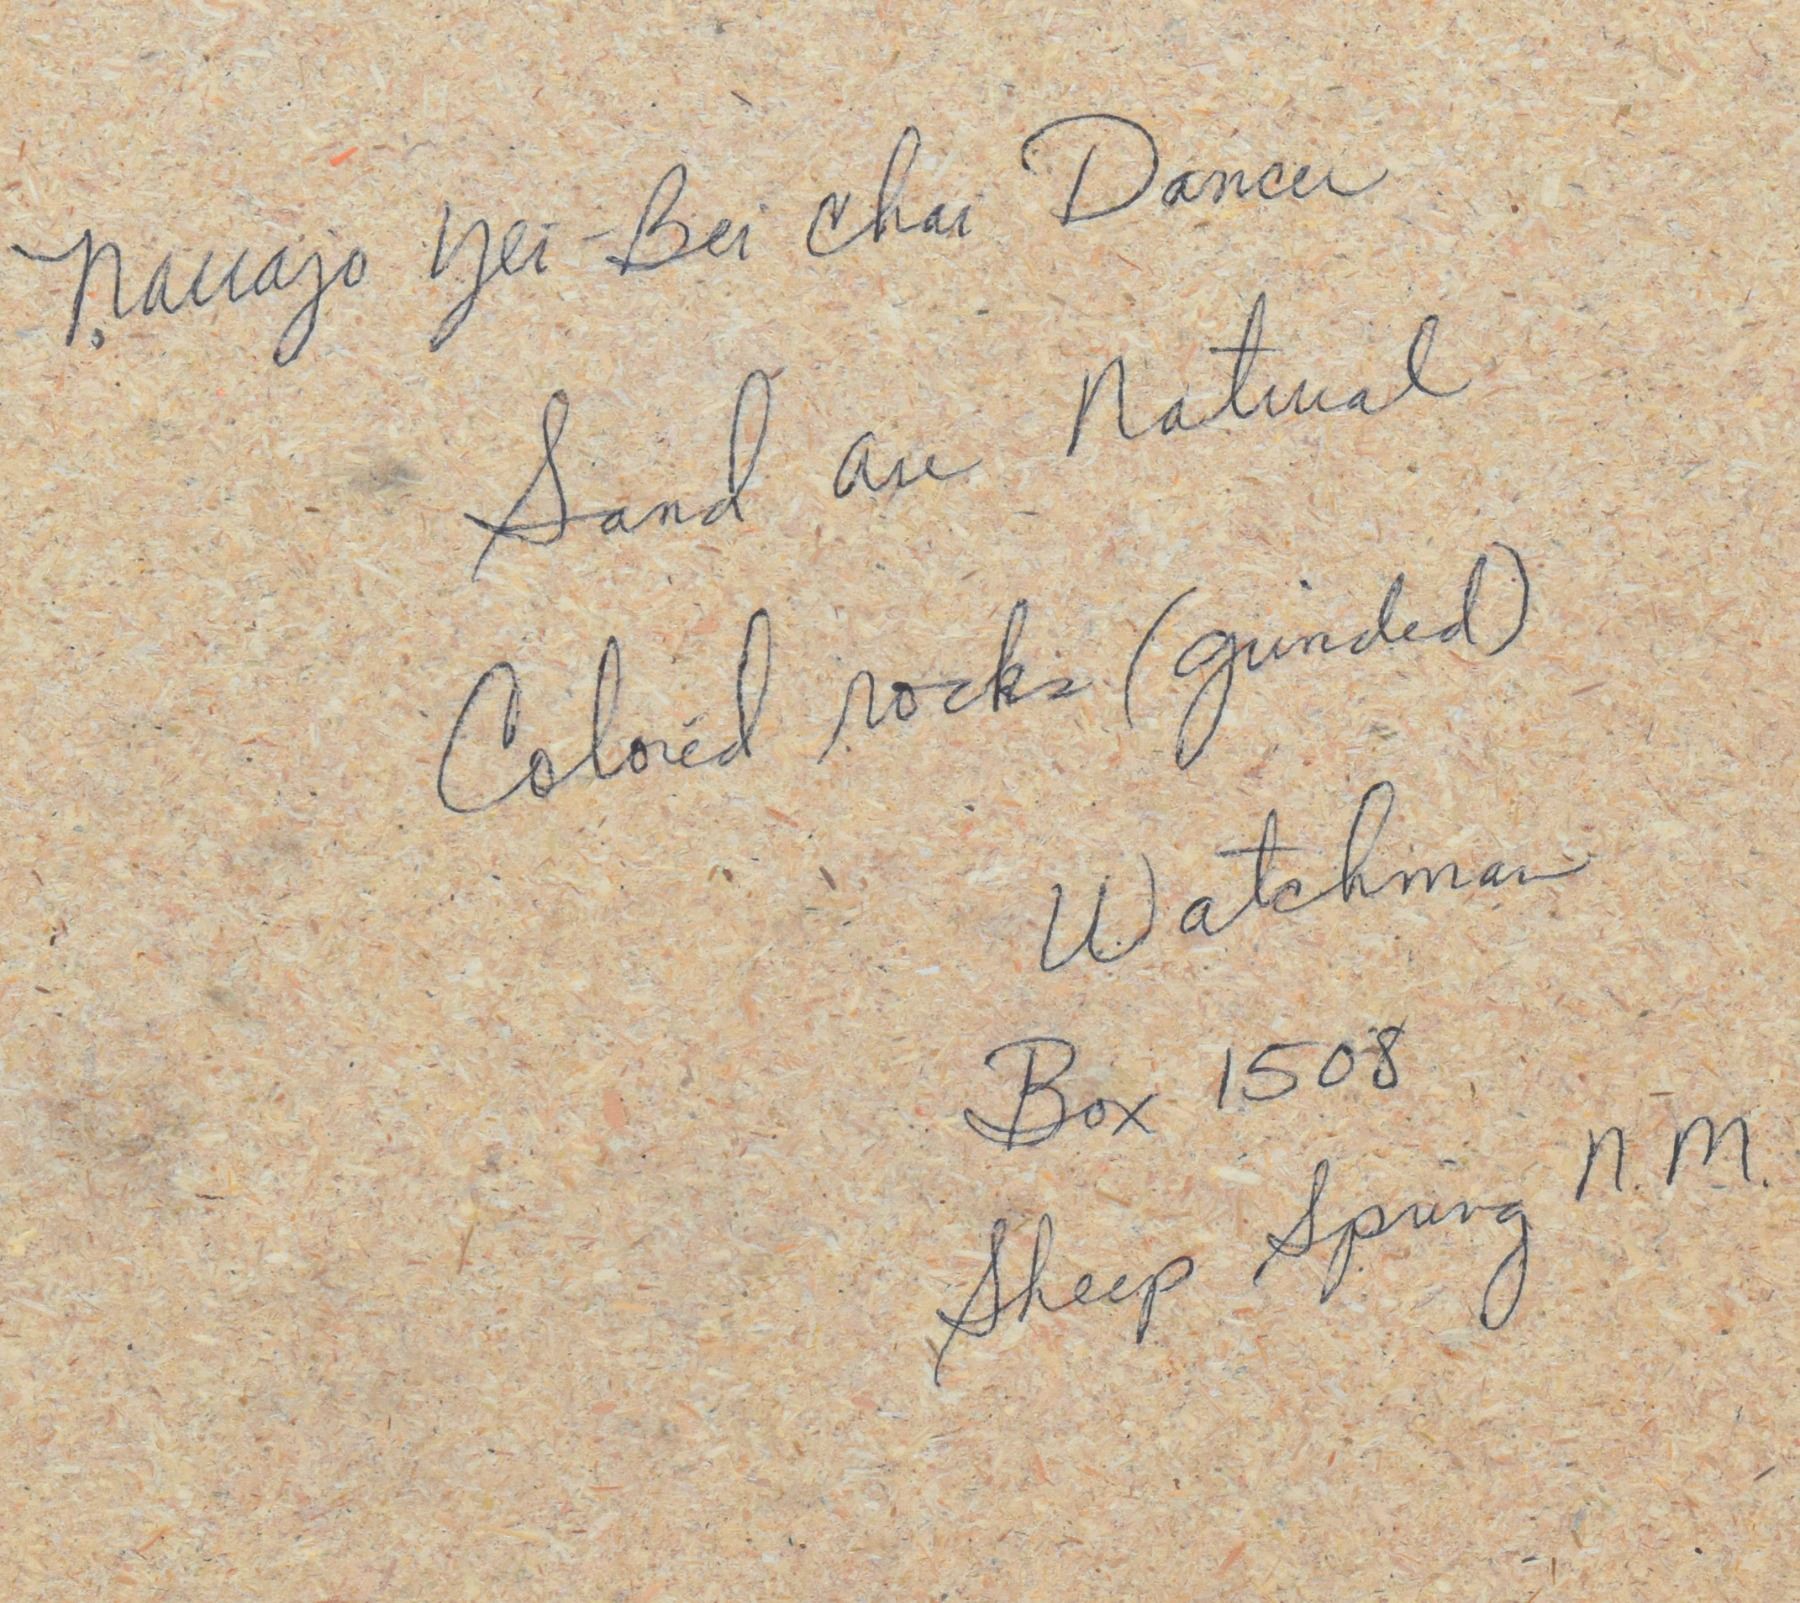 Navajo Yei-Bei Chai Dancer
Sand are Natural
Colored rocks (grinded)
Watchman
Box 1508
Sheep Spring N.M.